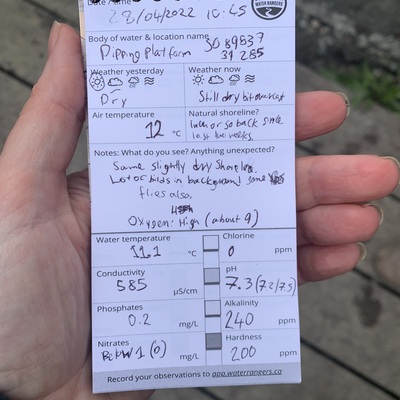 Date / time
28/04/2022 10:45
WATER RANGERS
Body of water & location name
Dipping Platform SO 89837
31 285
Weather yesterday
Weather now
Dry
Still dry bit overcast
Air temperature
Natural shoreline?
12 °C
so back since
last two weeks.
Notes: What do you see? Anything unexpected?
Same slightly dry Shoreline.
Lot of birds in background some
flies also.
Oxygen: High (about 9)
Water temperature
Chlorine
11.1 °C
0 ppm
Conductivity
pH
585 µS/cm
7.3 (7.2/7.5)
Phosphates
Alkalinity
0.2 mg/L
240 ppm
Nitrates
Hardness
Below 1 (0) mg/L
200 ppm
Record your observations to app.waterrangers.ca